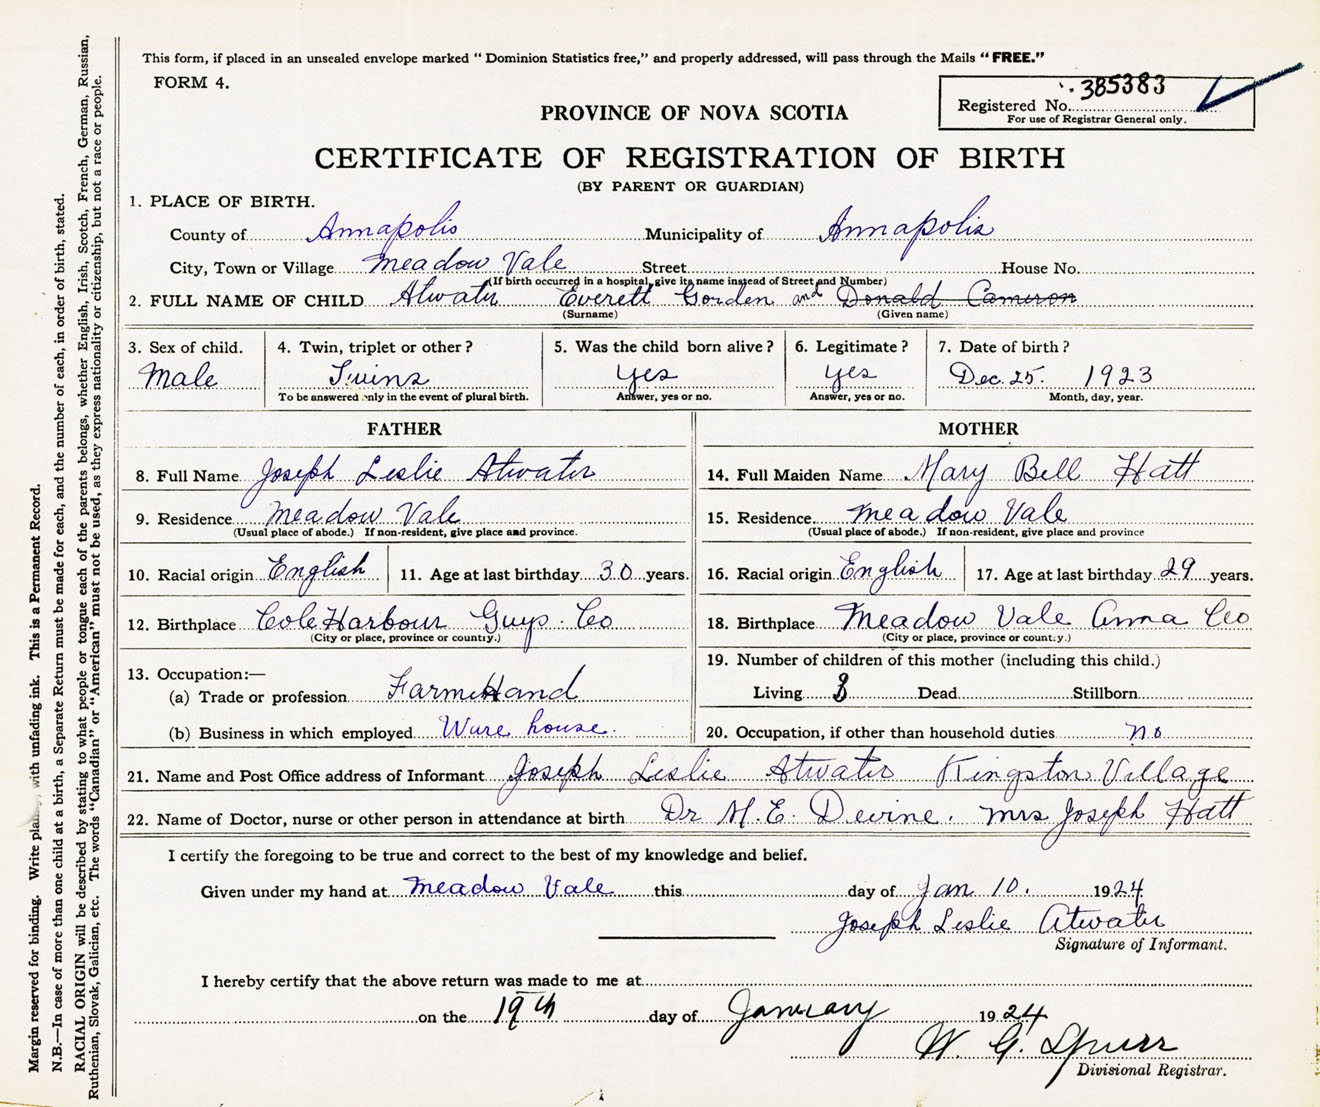 This form, if placed in an unsealed envelope marked “ Dominion Statistics free,” and properly addressed, will pass through the Mails “ FREE.”
FORM 4.
385383
Registered No.
For use of Registrar General only.
PROVINCE OF NOVA SCOTIA
CERTIFICATE OF REGISTRATION OF BIRTH
(BY PARENT OR GUARDIAN)
1. PLACE OF BIRTH.
County of Annapolis Municipality of Annapolis
City, Town or Village Meadow Vale Street House No.
(If birth occurred in a hospital, give its name instead of Street and Number)
2. FULL NAME OF CHILD Atwater Everett Gorden and Donald Cameron
(Surname) (Given name)
3. Sex of child. 4. Twin, triplet or other? 5. Was the child born alive? 6. Legitimate? 7. Date of birth?
Male Twins yes yes Dec. 25. 1923
To be answered only in the event of plural birth. Answer, yes or no. Answer, yes or no. Month, day, year.
FATHER MOTHER
8. Full Name Joseph Leslie Atwater 14. Full Maiden Name Mary Bell Hatt
9. Residence Meadow Vale 15. Residence Meadow Vale
(Usual place of abode.) If non-resident, give place and province. (Usual place of abode.) If non-resident, give place and province
10. Racial origin English 11. Age at last birthday 30 years. 16. Racial origin English 17. Age at last birthday 29 years.
12. Birthplace Cole Harbour Guys. Co 18. Birthplace Meadow Vale Anna Co
(City or place, province or country.) (City or place, province or country.)
13. Occupation:— 19. Number of children of this mother (including this child.)
(a) Trade or profession Farm Hand Living Dead Stillborn
(b) Business in which employed Ware house. 20. Occupation, if other than household duties no
21. Name and Post Office address of Informant Joseph Leslie Atwater Kingston Village
22. Name of Doctor, nurse or other person in attendance at birth Dr M. E. Devine. Mrs Joseph Hatt
I certify the foregoing to be true and correct to the best of my knowledge and belief.
Given under my hand at Meadow Vale this day of Jan 10. 1924
Joseph Leslie Atwater
Signature of Informant.
I hereby certify that the above return was made to me at
on the 19th day of January 1924
W. G. Spurr
Divisional Registrar.
Margin reserved for binding. Write plainly, with unfading ink. This is a Permanent Record.
N.B.—In case of more than one child at a birth, a Separate Return must be made for each, and the number of each, in order of birth, stated.
RACIAL ORIGIN will be described by stating to what people or tongue each of the parents belongs, whether English, Irish, Scotch, French, German, Russian,
Ruthenian, Slovak, Galician, etc. The words “Canadian” or “American” must not be used, as they express nationality or citizenship, but not a race or people.